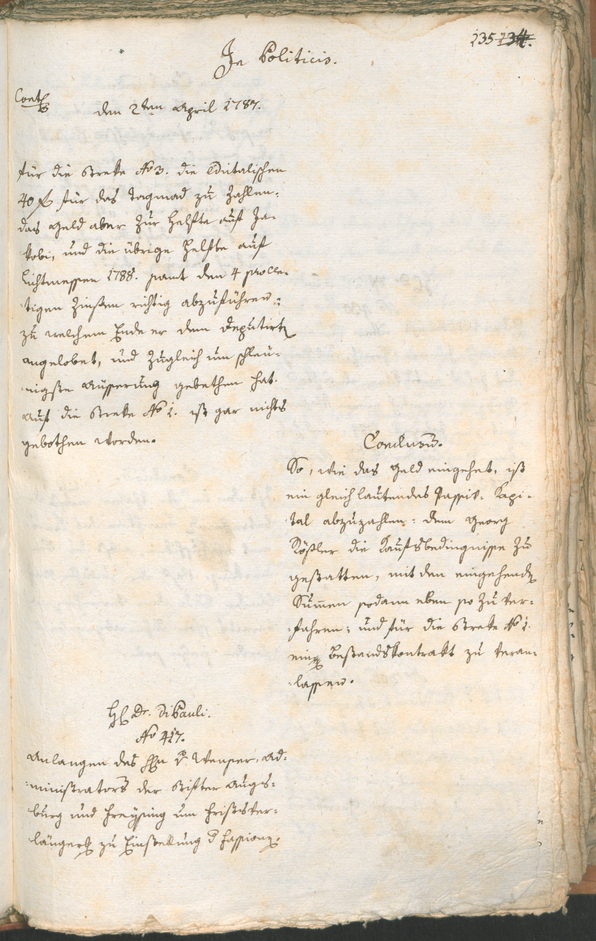 In Politicis.
235 234.
den 2ten April 1787.
für die Streke No 3. die Edictalischen
40 f für das Tagmad zu zahlen,
das Geld aber zur Helfte auf Ja-
kobi, und die übrige Helfte auf
Lichtmessen 1788. samt den 4 procen-
tigen Zinßen richtig abzuführen;
zu welchem Ende er dem Deputirten
angelobet, und zugleich um schleu-
nigste Äusserung gebethen hat.
Auf die Streke No 1. ist gar nichts
gebothen worden.
Conclusum.
So, wie das Geld eingehet, ist
ein gleich lautendes Passiv-Kapi-
tal abzuzahlen: dem Georg
Rößler die Kaufsbedingnisse zu
gestatten, mit den eingehenden
Summen sodann eben so zu ver-
fahren; und für die Streke No 1.
einen Bestandskontrakt zu veran-
lassen.
H. Dr. Di Pauli.
No 417.
Anlangen des Hn v. Wenser, Ad-
ministrators der Stifter Augs-
burg und Freysing um Fristver-
längerung zu Einstellung